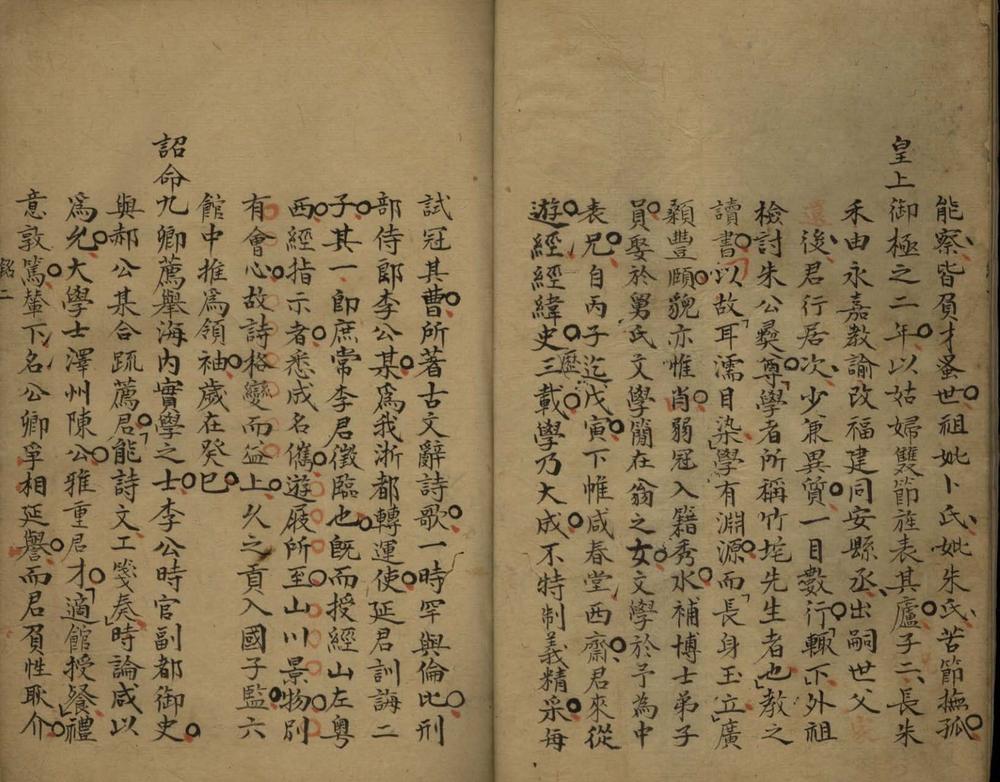 能察皆負才蚤世祖妣卜氏妣朱氏苦節撫孤
皇上御極之二年以姑婦雙節旌表其廬子二長朱
禾由永嘉教諭改福建同安縣丞出嗣世父
後君行居次少兼異質一目數行輙下外祖
檢討朱公彝尊學者所稱竹垞先生者也教之
讀書以故耳濡目染學有淵源而長身玉立廣
顙豐頤貌亦惟肖弱冠入籍秀水補博士弟子
員娶於舅氏文學簡在翁之女文學於予為中
表兄自丙子迄戊寅下帷咸春堂西齋君來從
遊經經緯史三歷載學乃大成不特制義精采每
試冠其曹所著古文辭詩歌一時罕與倫比刑
部侍郎李公某為我浙都轉運使延君訓誨二
子其一即庶常李君徵臨也既而授經山左粤
西經指示者悉成名儁遊屐所至山川景物別
有會心故詩格變而益上久之貢入國子監六
館中推爲領袖歲在癸巳
詔命九卿薦舉海內實學之士李公時官副都御史
與郝公某合疏薦君能詩文工箋奏時論咸以
爲允大學士澤州陳公雅重君才適館授餐禮
意敦篤輦下名公卿爭相延譽而君負性耿介
銘二